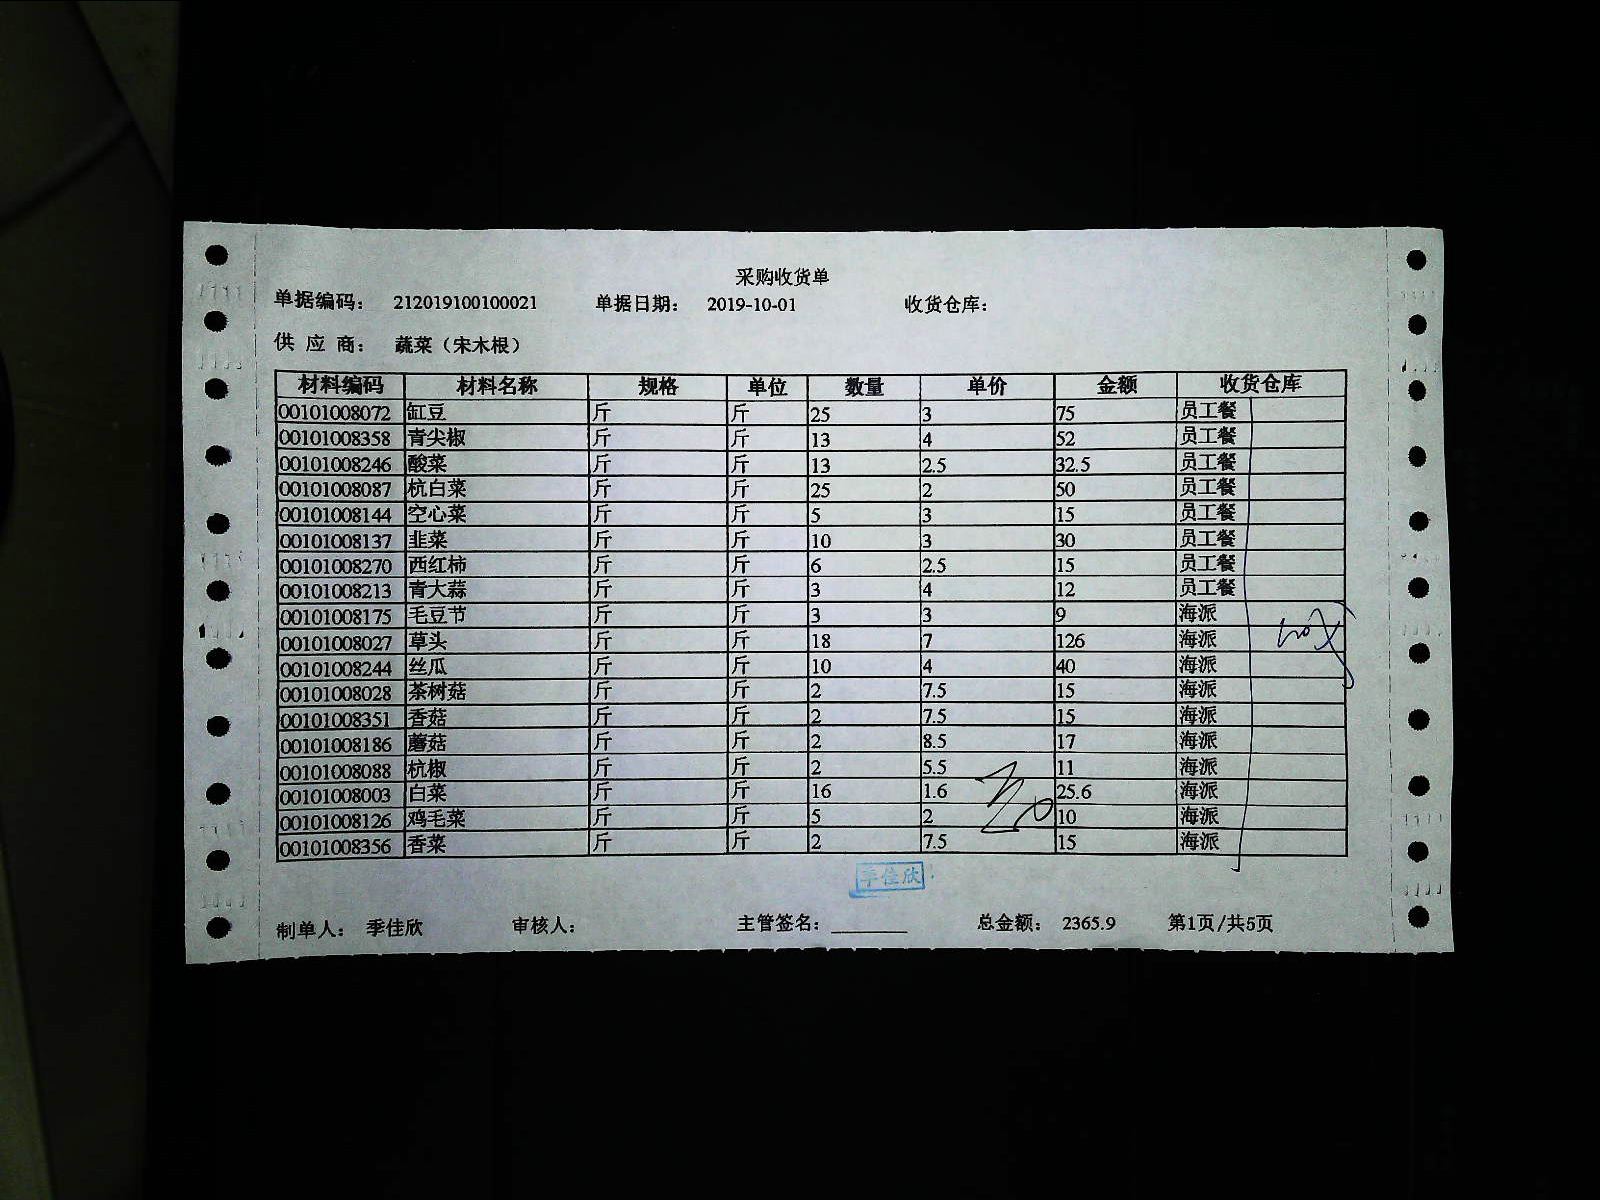 采购收货单
单据编码： 212019100100021 单据日期： 2019-10-01 收货仓库：
供 应 商： 蔬菜（宋木根）
材料编码 材料名称 规格 单位 数量 单价 金额 收货仓库
00101008072 缸豆 斤 斤 25 3 75 员工餐
00101008358 青尖椒 斤 斤 13 4 52 员工餐
00101008246 酸菜 斤 斤 13 2.5 32.5 员工餐
00101008087 杭白菜 斤 斤 25 2 50 员工餐
00101008144 空心菜 斤 斤 5 3 15 员工餐
00101008137 韭菜 斤 斤 10 3 30 员工餐
00101008270 西红柿 斤 斤 6 2.5 15 员工餐
00101008213 青大蒜 斤 斤 3 4 12 员工餐
00101008175 毛豆节 斤 斤 3 3 9 海派
00101008027 草头 斤 斤 18 7 126 海派
00101008244 丝瓜 斤 斤 10 4 40 海派
00101008028 茶树菇 斤 斤 2 7.5 15 海派
00101008351 香菇 斤 斤 2 7.5 15 海派
00101008186 蘑菇 斤 斤 2 8.5 17 海派
00101008088 杭椒 斤 斤 2 5.5 11 海派
00101008003 白菜 斤 斤 16 1.6 25.6 海派
00101008126 鸡毛菜 斤 斤 5 2 10 海派
00101008356 香菜 斤 斤 2 7.5 15 海派
季佳欣
制单人： 季佳欣 审核人： 主管签名： 总金额： 2365.9 第1页/共5页